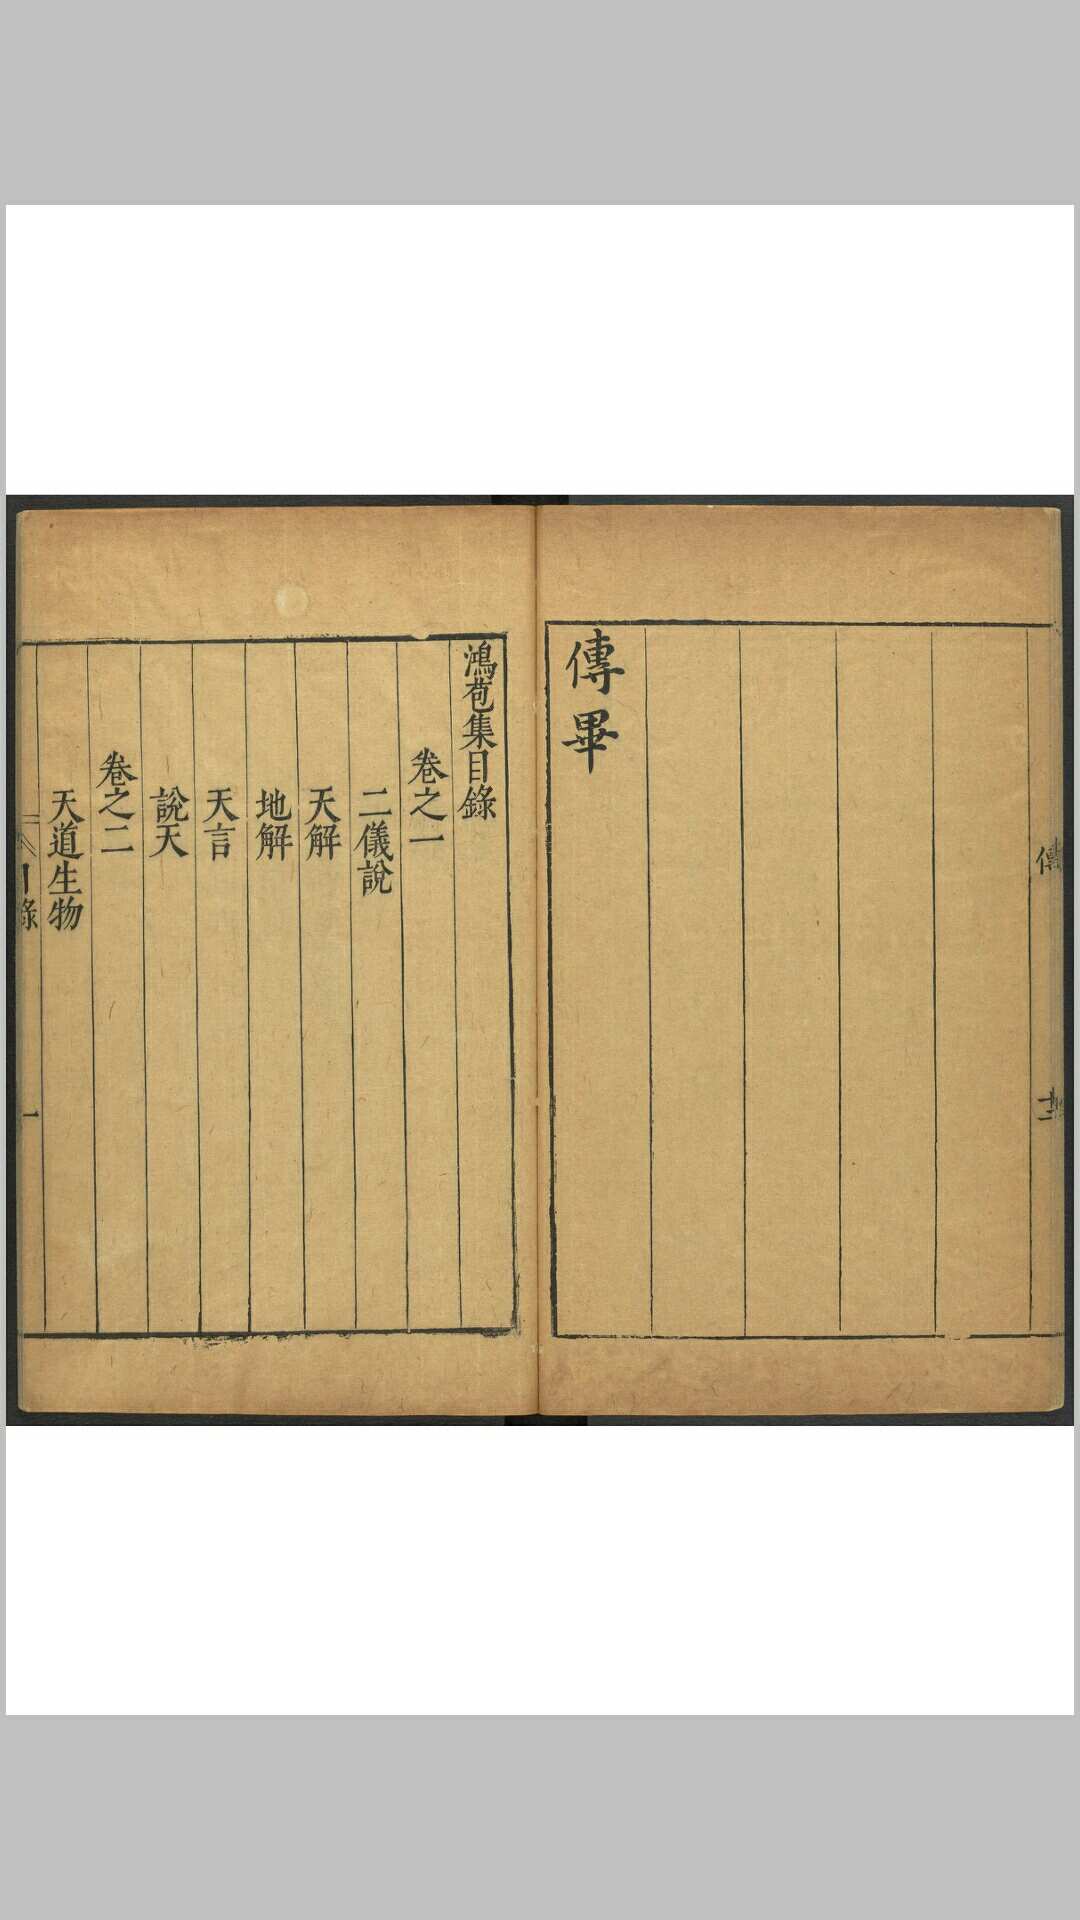 傳
十三
傳畢
鴻苞集目錄
卷之一
二儀說
天解
地解
天言
說天
卷之二
天道生物
目錄
一